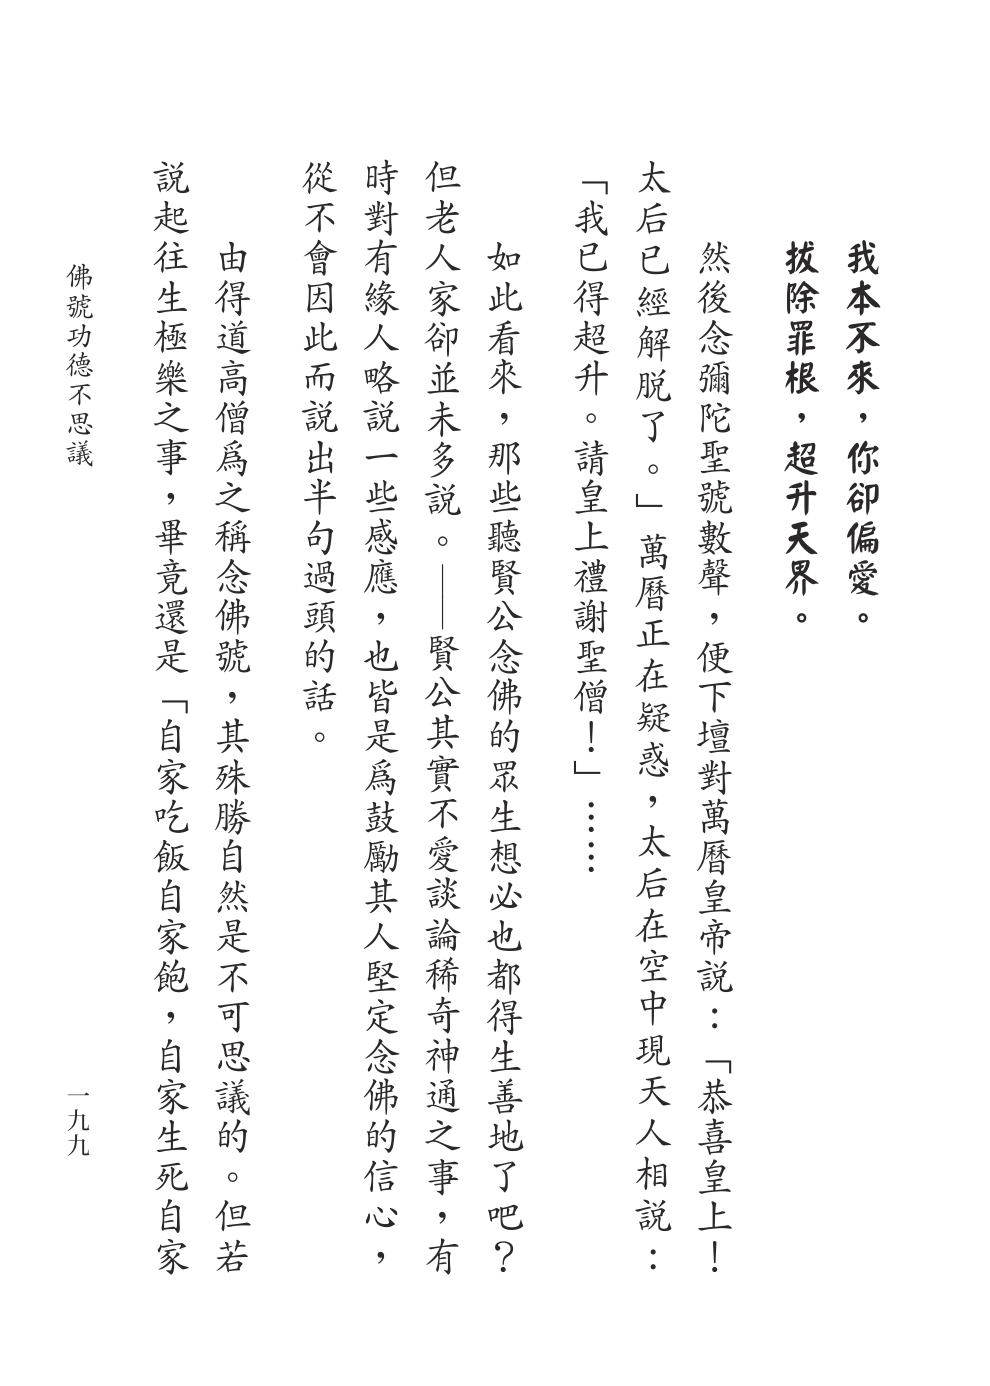 我本不來，你卻偏愛。
拔除罪根，超升天界。
然後念彌陀聖號數聲，便下壇對萬曆皇帝説：「恭喜皇上！
太后已經解脱了。」萬曆正在疑惑，太后在空中現天人相説：
「我已得超升。請皇上禮謝聖僧！」……
如此看來，那些聽賢公念佛的眾生想必也都得生善地了吧？
但老人家卻並未多説。——賢公其實不愛談論稀奇神通之事，有
時對有緣人略説一些感應，也皆是爲鼓勵其人堅定念佛的信心，
從不會因此而説出半句過頭的話。
由得道高僧爲之稱念佛號，其殊勝自然是不可思議的。但若
説起往生極樂之事，畢竟還是「自家吃飯自家飽，自家生死自家
佛號功德不思議
一九九